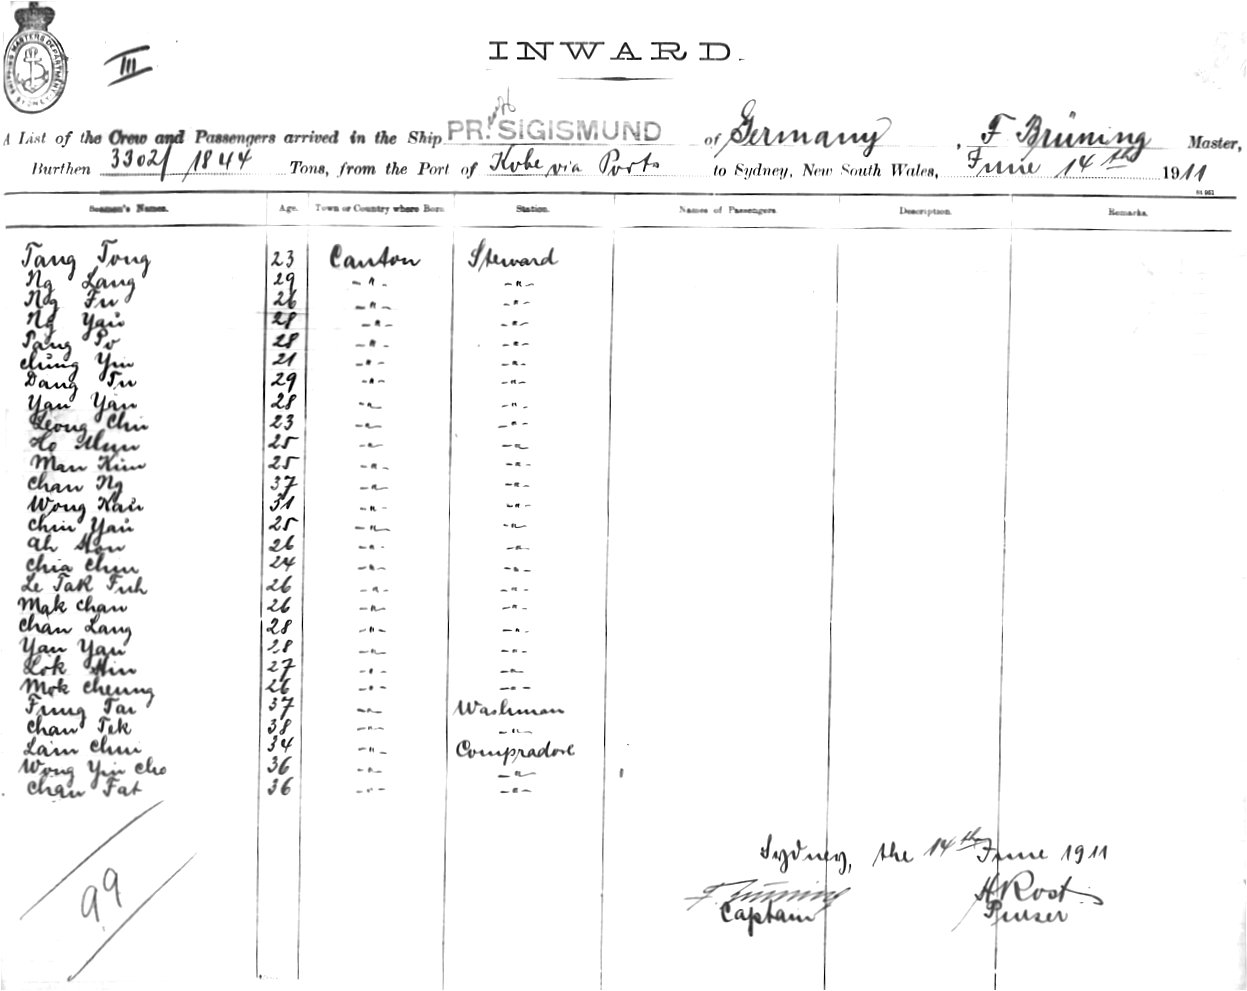 SHIPPING MASTERS DEPARTMENT SYDNEY
III
INWARD.
A List of the Crew and Passengers arrived in the Ship PR. SIGISMUND of Germany, F Brüning Master,
Burthen 3302/1844 Tons, from the Port of Kobe via Ports to Sydney, New South Wales, June 14th 1911
Seamen's Names. Age. Town or Country where Born. Station. Names of Passengers. Description. Remarks.
Tang Tong 23 Canton Steward
Ng Lang 29 -"- -"-
Ng Fu 26 -"- -"-
Ng Yaŭ 28 -"- -"-
Pang Po 28 -"- -"-
Chŭng Yin 21 -"- -"-
Dang Fu 29 -"- -"-
Yau Yau 28 -"- -"-
Leong Chu 23 -"- -"-
Ho 25 -"- -"-
Man Kim 25 -"- -"-
Chan Ng 37 -"- -"-
Wong Kaŭ 31 -"- -"-
Chiu Yaŭ 25 -"- -"-
Ah Hon 26 -"- -"-
Chia Chun 24 -"- -"-
Le Tak Fuh 26 -"- -"-
Mak Chan 26 -"- -"-
Chan Lang 28 -"- -"-
Yau Yau 28 -"- -"-
Lok Hin 27 -"- -"-
Mok Cheung 26 -"- -"-
Fung Tai 37 -"- Washman
Chan Tek 38 -"- -"-
Lam Chui 34 -"- Compradore
Wong Yin Cho 36 -"- -"-
Chan Fat 36 -"- -"-
99
Sydney, the 14th June 1911
F Brüning HRost
Captain Purser